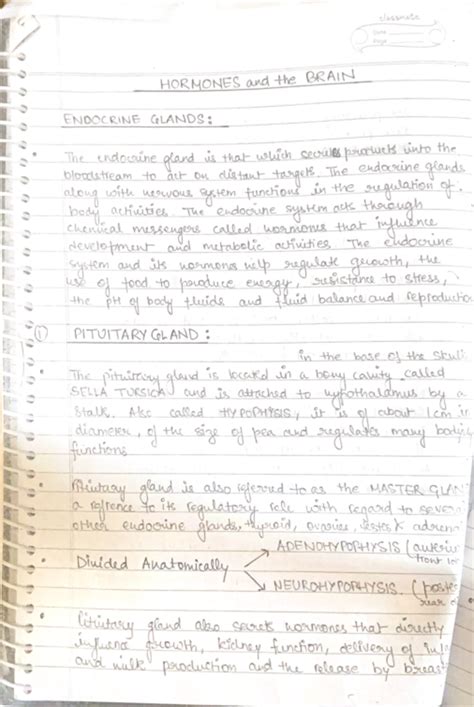 classmate
Date
Page
HORMONES and the BRAIN
ENDOCRINE GLANDS:
The endocrine gland is that which secretes products into the
bloodstream to act on distant targets. The endocrine glands
along with nervous system functions in the regulation of
body activities. The endocrine system acts through
chemical messengers called hormones that influence
development and metabolic activities. The endocrine
system and its hormones help regulate growth, the
use of food to produce energy, resistance to stress,
the pH of body fluids and fluid balance and reproductio
① PITUITARY GLAND:
in the base of the skull
The pituitary gland is located in a bony cavity called
SELLA TURSICA and is attached to hypothalamus by a
stalk. Also called HYPOPHYSIS, it is of about 1cm i
diameter, of the size of pea and regulates many bodil
functions
• Pituitary gland is also referred to as the MASTER GLAN
a refrence to its regulatory role with regard to sever
other endocrine glands, thyroid, ovaries, testes & adrena
• Divided Anatomically → ADENOHYPOPHYSIS (anterior
front lo
→ NEUROHYPOPHYSIS. (poste
rear
• Pituitary gland also secrets hormones that directly
influence growth, kidney function, delivery of inf
and milk production and the release by breas